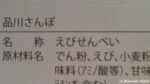 品川さんぽ
名　称　えびせんべい
原材料名　でん粉、えび、小麦粉
味料（アミノ酸等）、甘味